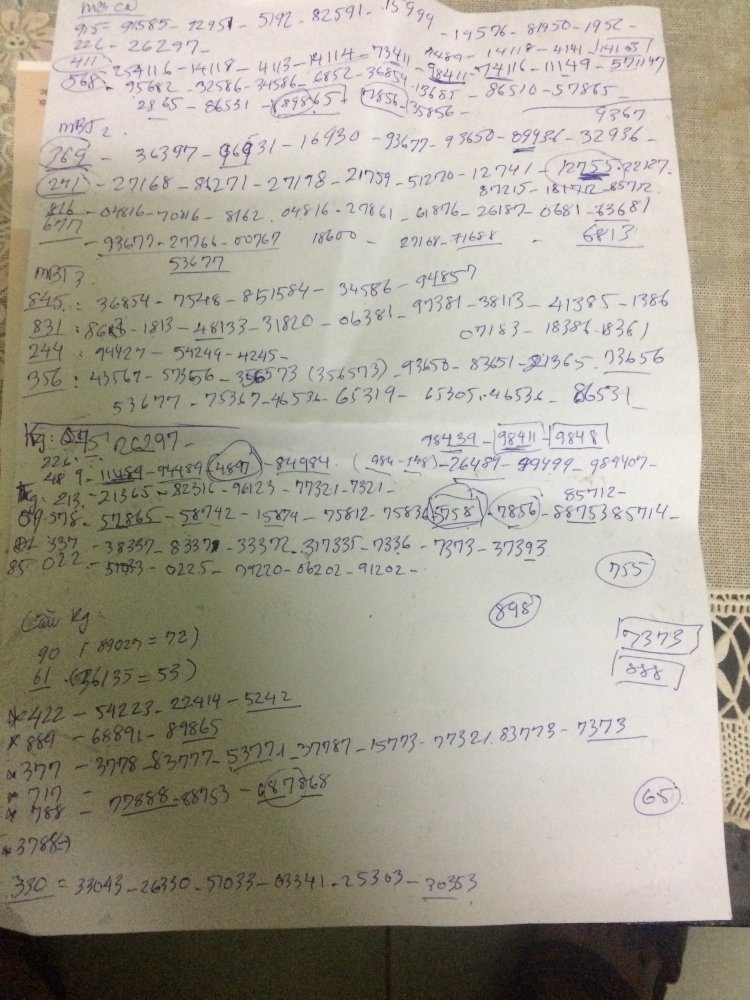 MB CN
915- 91585- 12951- 5192- 82591- 15999 -19576- 81950-1952-
226- 26297-
411 254116-14118-4113-14114-73411- 9489- 14118-4141-14163
568- 95682-32586-34586-6852-36854- 98411-74116-11149-571147
13685- 86510-57865-
2865-86531-189865- 7856-35856-
9367
MBT2
769 - 36397- 36931-16930-93677-93650-09936-32936-
271 -27168-81271-27198-21759-51270-12741-12755-22127
87215- 181712-85712
816 -04816-70816-8162. 04816-27861-61876-26187-0681-63681
677 -93677-27766-00767 18600- 27168-71688 - 6813
53677
MBT3
845: 36854-7548-851584-34586-94857
831: 8613-1813-48133-31820-06381-97381-38113-41385-1386
07183-18386-18361
244: 94427-54249-4245-
356: 43567-57356-356573 (356573)-93650-83651-21365.73656
53677-75367-46536-65319-65305.46536-86531-
26297- 98439-98411-9848
226:
489-11489-94489-4897-84984. (984-  )-26489-99499-989407-
213-21365-82316-96123-77321-7321-
85712-
578-57865-58742-15874-75812-75836-5758-7856-88753 85714-
337 -38337-83371-33372.317335-7336-7373-37393
85 022-  -0225-79220-06202-91202-
755
898
Cầu Kg:
90 (89027=72) 7373
61 (36135=53) 888
*422-54223-22414-5242
*889-68891-89865
*377-3778-83777-53771-37787-15773-77321.83773-7373
*717-
*788- 77888-88753-687868
65
*3788-)
330= 33043-26330-51033-03341-25303-30353